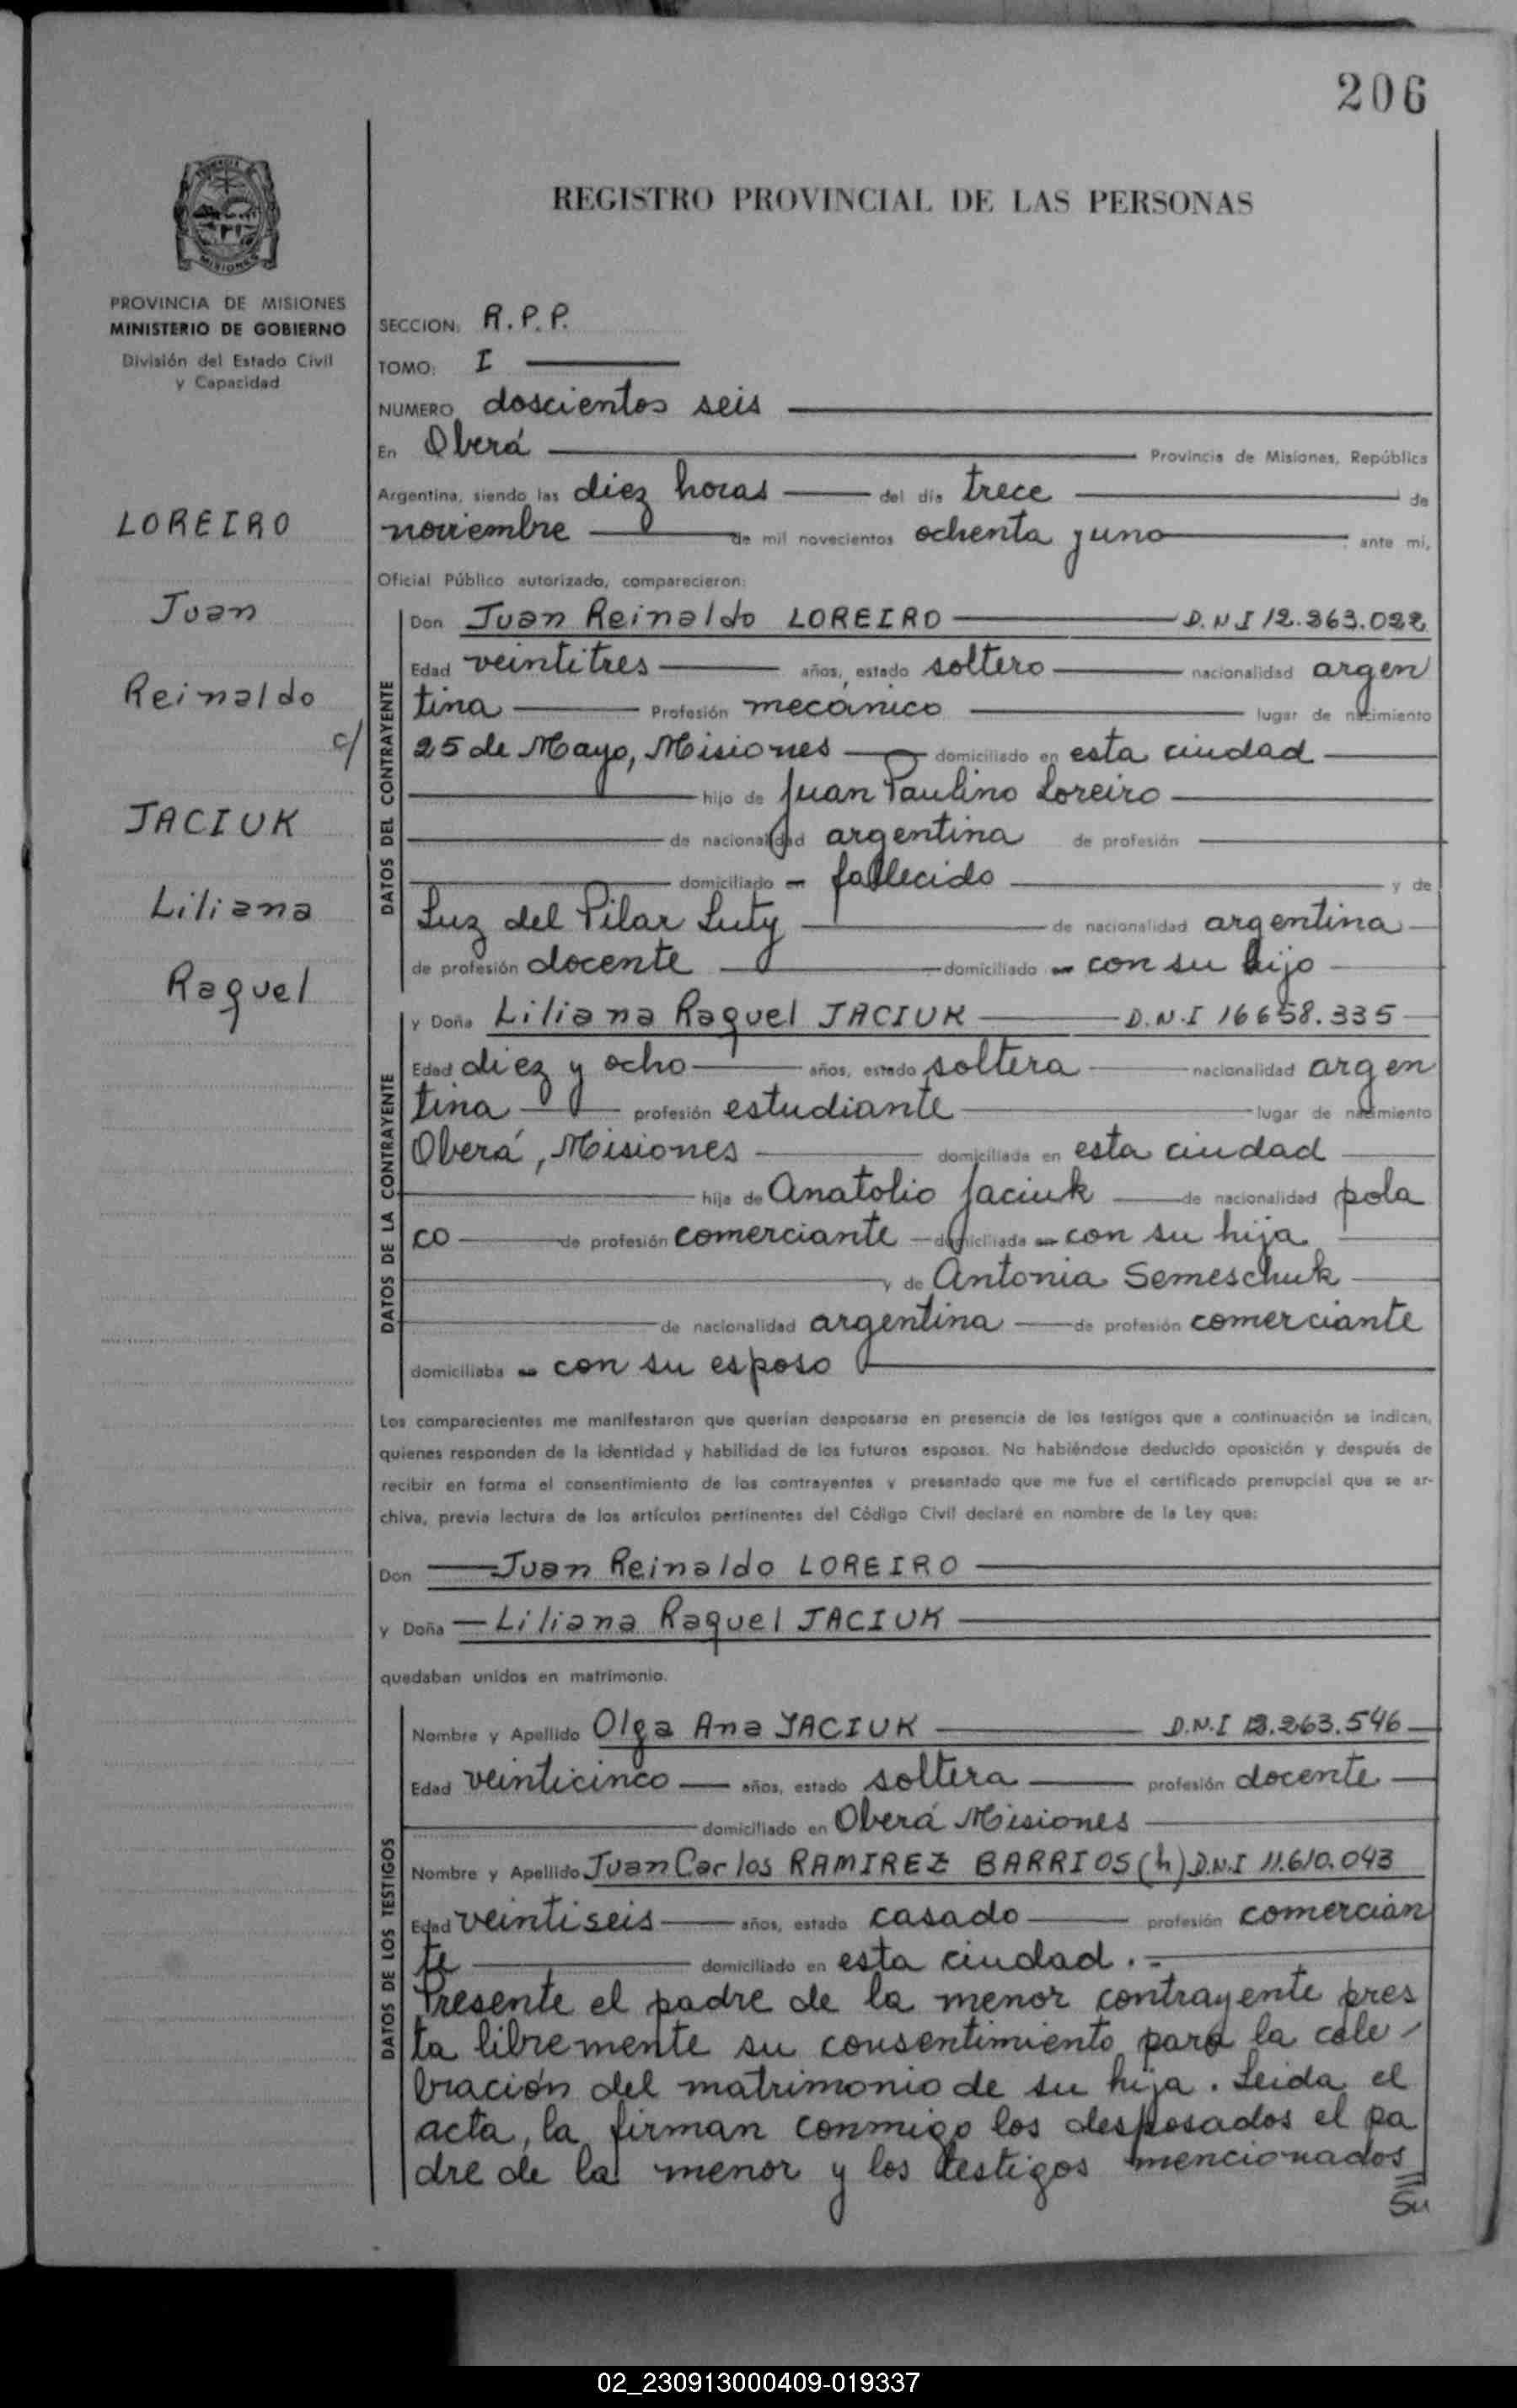 206
REGISTRO PROVINCIAL DE LAS PERSONAS
MISIONES
PROVINCIA DE MISIONES
MINISTERIO DE GOBIERNO
División del Estado Civil
y Capacidad
LOREIRO
Juan
Reinaldo
c/
JACIUK
Liliana
Raquel
SECCION: R.P.P.
TOMO: I
NUMERO doscientos seis
En Oberá Provincia de Misiones, República
Argentina, siendo las diez horas del día trece de
noviembre de mil novecientos ochenta y uno ante mi,
Oficial Público autorizado, comparecieron:
DATOS DEL CONTRAYENTE
Don Juan Reinaldo LOREIRO D.N.I 12.363.022
Edad veintitres años, estado soltero nacionalidad argen
tina Profesión mecánico lugar de nacimiento
25 de Mayo, Misiones domiciliado en esta ciudad
hijo de Juan Paulino Loreiro
de nacionalidad argentina de profesión
domiciliado en fallecido y de
Luz del Pilar Luty de nacionalidad argentina
de profesión docente domiciliado en con su hijo
DATOS DE LA CONTRAYENTE
y Doña Liliana Raquel JACIUK D.N.I 16658.335
Edad diez y ocho años, estado soltera nacionalidad argen
tina profesión estudiante lugar de nacimiento
Oberá, Misiones domiciliada en esta ciudad
hija de Anatolio Jaciuk de nacionalidad pola
co de profesión comerciante domiciliada en con su hija
y de Antonia Semeschuk
de nacionalidad argentina de profesión comerciante
domiciliaba en con su esposo
Los comparecientes me manifestaron que querían desposarse en presencia de los testigos que a continuación se indican,
quienes responden de la identidad y habilidad de los futuros esposos. No habiéndose deducido oposición y después de
recibir en forma el consentimiento de los contrayentes y presentado que me fue el certificado prenupcial que se ar-
chiva, previa lectura de los artículos pertinentes del Código Civil declaré en nombre de la Ley que:
Don Juan Reinaldo LOREIRO
y Doña Liliana Raquel JACIUK
quedaban unidos en matrimonio.
DATOS DE LOS TESTIGOS
Nombre y Apellido Olga Ana JACIUK D.N.I
Edad veinticinco años, estado soltera profesión docente
domiciliado en Oberá Misiones
Nombre y Apellido Juan Carlos RAMIREZ BARRIOS (h) D.N.I 11.610.043
Edad veintiseis años, estado casado profesión comercian
te domiciliado en esta ciudad.-
Presente el padre de la menor contrayente pres
ta libremente su consentimiento para la cele-
bración del matrimonio de su hija. Leida el
acta, la firman conmigo los desposados el pa
dre de la menor y los testigos mencionados
02_230913000409-019337